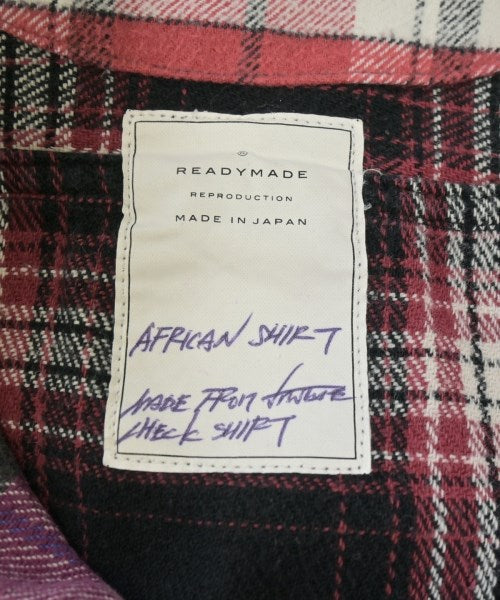 ®
READYMADE
REPRODUCTION
MADE IN JAPAN
AFRICAN SHIRT
MADE FROM
CHECK SHIRT